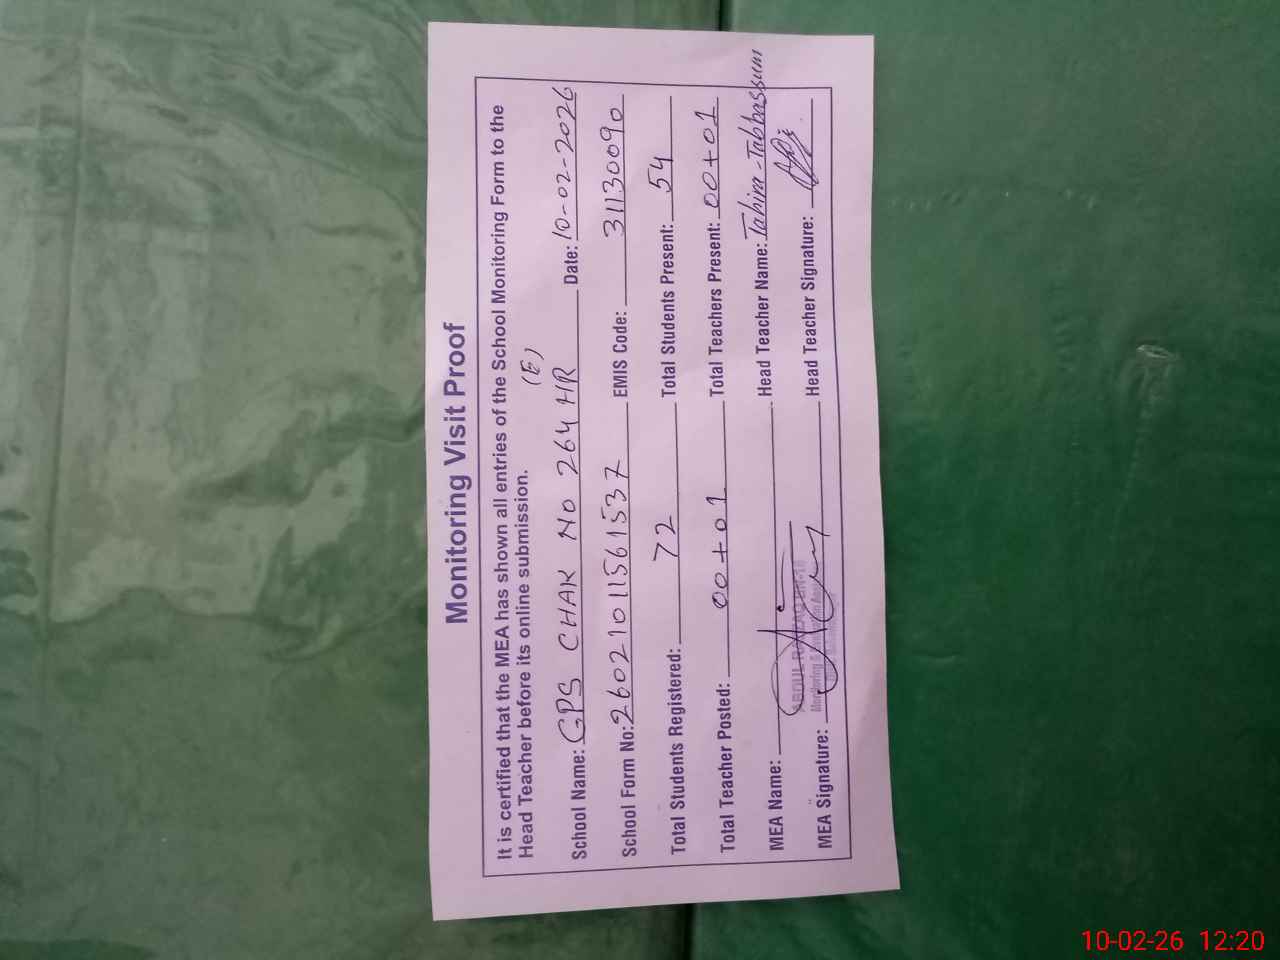 Monitoring Visit Proof
It is certified that the MEA has shown all entries of the School Monitoring Form to the
Head Teacher before its online submission.
(E)
School Name: GPS CHAK NO 264 HR Date: 10-02-2026
School Form No: 2602101561537 EMIS Code: 31130090
Total Students Registered: 72 Total Students Present: 54
Total Teacher Posted: 00+01 Total Teachers Present: 00+01
MEA Name: Head Teacher Name: Tahira-Tabbassum
ABDUL RAZZAQ
Monitoring &
MEA Signature: Head Teacher Signature:
10-02-26 12:20